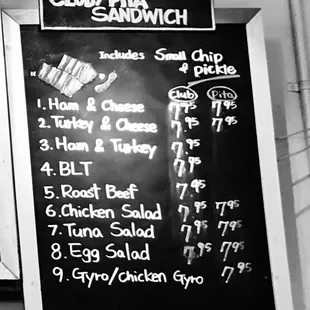 CLUB/PITA
SANDWICH
Includes Small Chip
& pickle
Club Pita
1. Ham & Cheese 7.95 7.95
2. Turkey & Cheese 7.95 7.95
3. Ham & Turkey 7.95
4. BLT 7.95
5. Roast Beef 7.95
6. Chicken Salad 7.95 7.95
7. Tuna Salad 7.95 7.95
8. Egg Salad 7.95 7.95
9. Gyro/Chicken Gyro 7.95